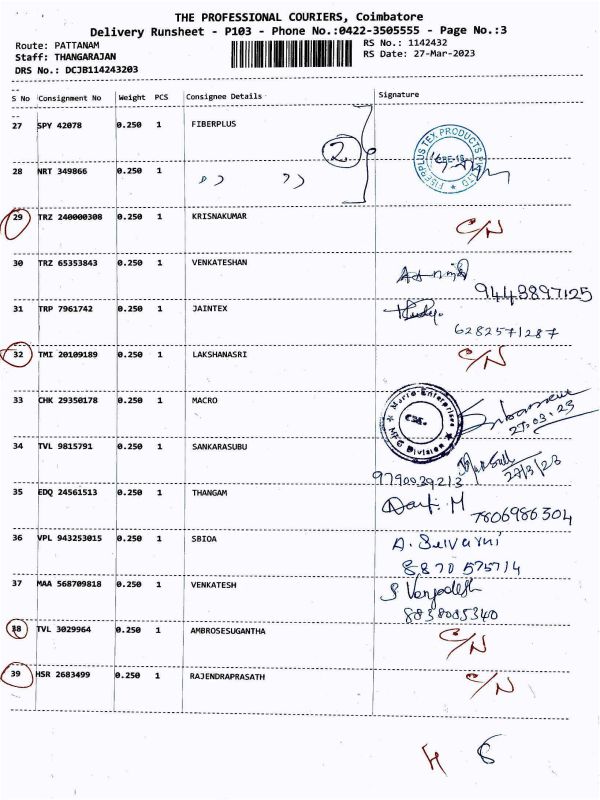 THE PROFESSIONAL COURIERS, Coimbatore
Delivery Runsheet - P103 - Phone No.:0422-3505555 - Page No.:3
Route: PATTANAM RS No.: 1142432
Staff: THANGARAJAN RS Date: 27-Mar-2023
DRS No.: DCJB114243203
S No Consignment No Weight PCS Consignee Details Signature
27 SPY 42078 0.250 1 FIBERPLUS 2
FIBERPLUS TEX PRODUCTS PVT LTD
28 NRT 349866 0.250 1 " "
29 TRZ 240000308 0.250 1 KRISNAKUMAR C/N
30 TRZ 65353843 0.250 1 VENKATESHAN
9443897125
31 TRP 7961742 0.250 1 JAINTEX
6282571287
32 TMI 20109189 0.250 1 LAKSHANASRI C/N
33 CHK 29350178 0.250 1 MACRO
Enterprises CBE. MFG Division
27.03.23
34 TVL 9815791 0.250 1 SANKARASUBU
27/3/23
9790039213
35 EDQ 24561513 0.250 1 THANGAM
7806986304
36 VPL 943253015 0.250 1 SBIOA A. Selvarni
8870575714
37 MAA 568709818 0.250 1 VENKATESH S Venjadesh
8838085340
38 TVL 3029964 0.250 1 AMBROSESUGANTHA C/N
39 HSR 2683499 0.250 1 RAJENDRAPRASATH C/N